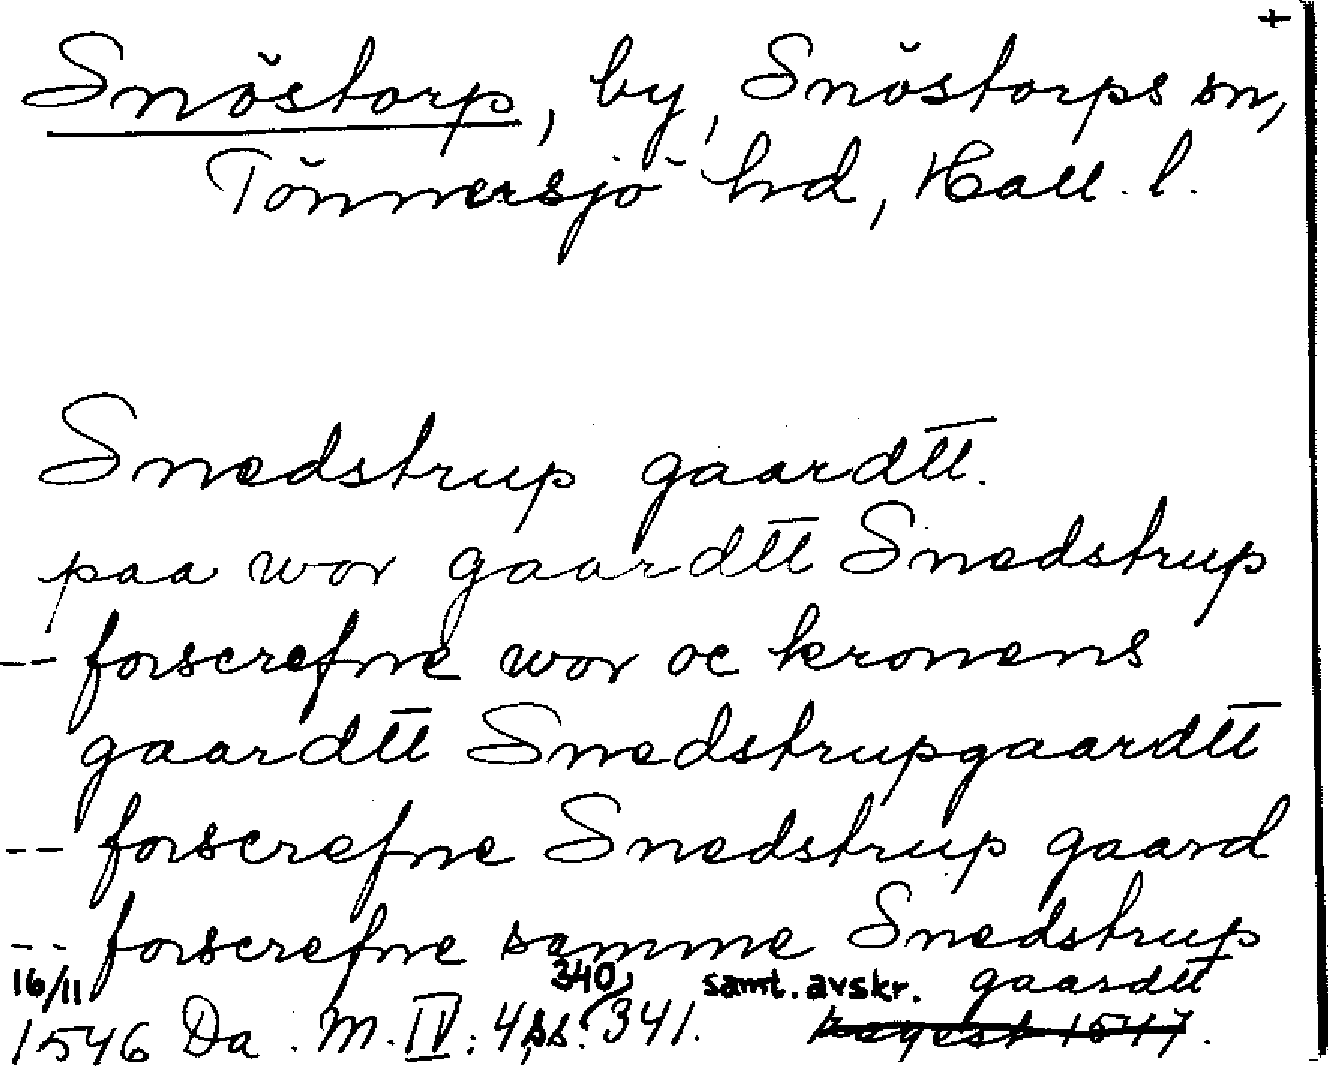 +
Snöstorp, by, Snöstorps sn,
Tönnersjö hd, Hall. l.
Snedstrup gaardtt.
paa wor gaardtt Snedstrup
-- forscrefne wor oc kronens
gaardtt Snedstrupgaardtt
-- forscrefne Snedstrup gaard
-- forscrefne samme Snedstrup
gaardtt
16/11 340, samt. avskr.
1546 Da. M. IV: 4, ss. 341. regest 1547.